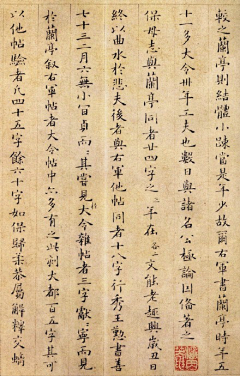 較之蘭亭則結體小疎當是年少故爾右軍書蘭亭時年五
十一多大令卅年工夫也數日與諸名公極論因備著之
保母志與蘭亭同者廿四字之二年在名文能老趣興歲丑日
終以曲水於悲夫後者與右軍他帖同者十八字行秀王懃書善
七十三二月六無小百貞而其嘗見於大今雜帖者三字獻之寧而見
於蘭亭敘右軍帖者大令帖中亦多有之此刻大都百五字其可
以他帖驗者凡四十五字餘六十字如保歸柔恭屬解釋交螭